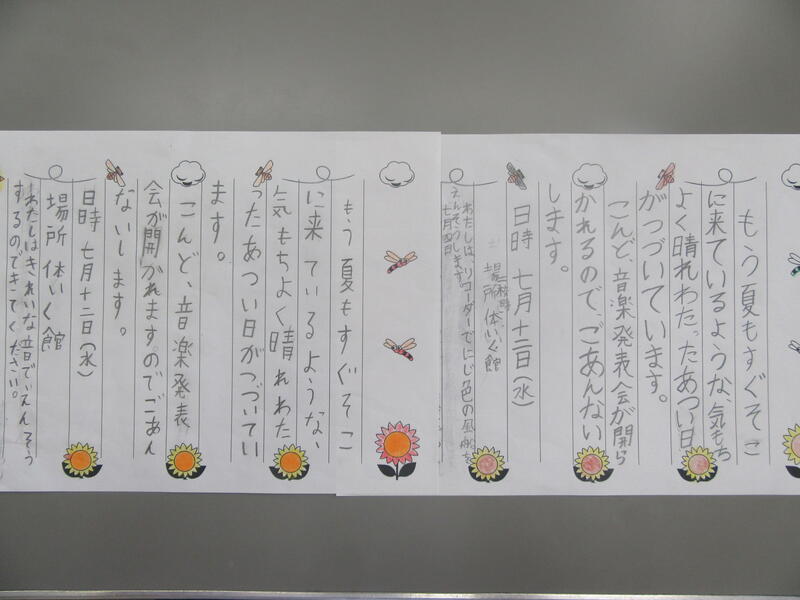 もう夏もすぐそこ
に来ているような、気もち
よく晴れわたったあつい日
がつづいています。
こんど、音楽発表会が開ら
かれるので、ごあんない
します。
日時 七月十二日(水)
場所 体いく館
わたしは、リコーダーでにじ色の風船を
えんそうします。
七月四日
もう夏もすぐそこ
に来ているような、
気もちよく晴れわた
ったあつい日がつづいてい
ます。
こんど、音楽発表
会が開かれますのでごあん
ないします。
日時 七月十二日(水)
場所 体いく館
わたしはきれいな音でえんそう
するのできてください。